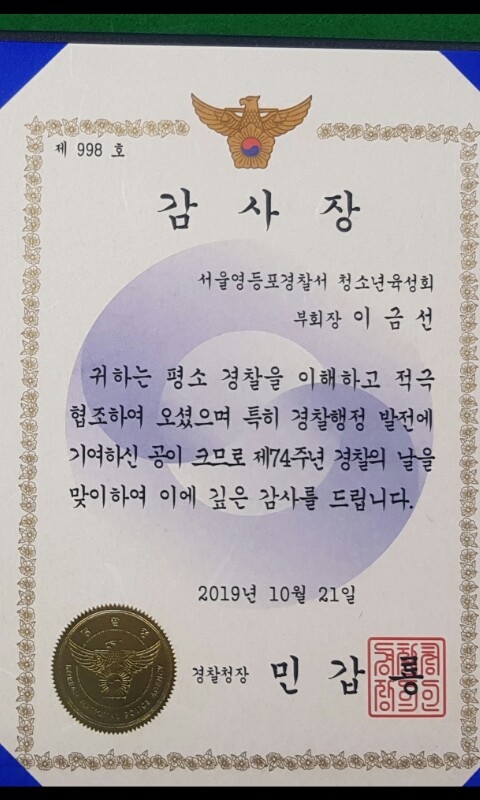 제 998 호
감 사 장
서울영등포경찰서 청소년육성회
부회장 이 금 선
귀하는 평소 경찰을 이해하고 적극
협조하여 오셨으며 특히 경찰행정 발전에
기여하신 공이 크므로 제74주년 경찰의 날을
맞이하여 이에 깊은 감사를 드립니다.
2019년 10월 21일
경찰청장 민 갑 룡
경찰청
KOREAN NATIONAL POLICE AGENCY